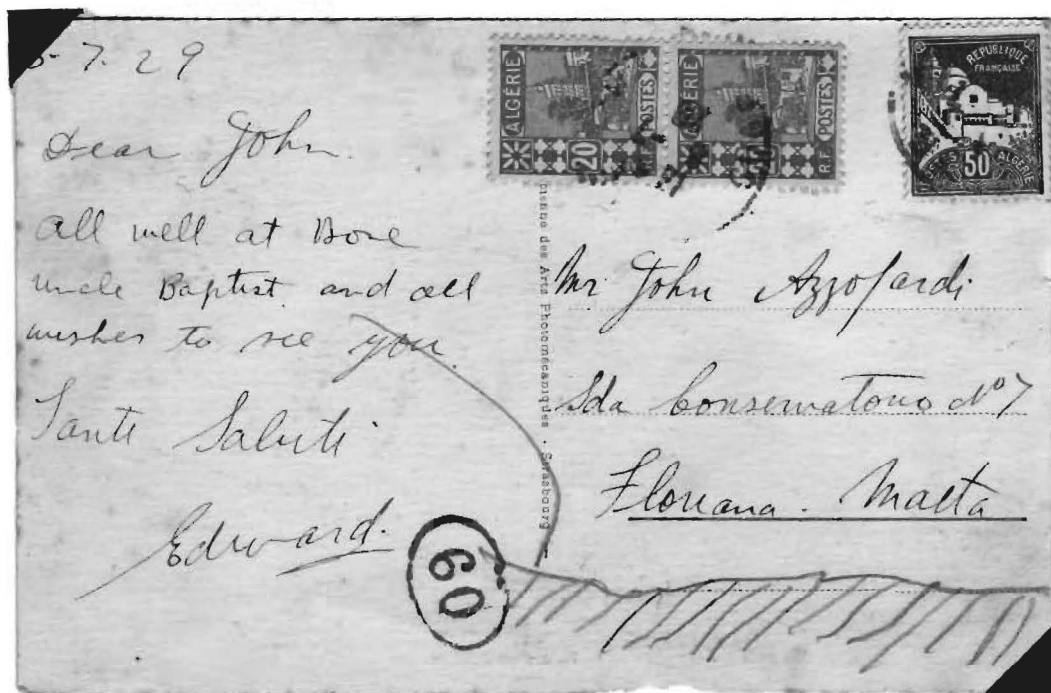 -7.29
Dear John.
all well at Bone
uncle Baptist. and all
wishes to see you.
Tanti Saluti.
Edward.
60
ALGÉRIE
20
POSTES
R.F.
ALGÉRIE
POSTES
R.F.
REPUBLIQUE
FRANÇAISE
POSTES ALGÉRIE
50
des Arts Photomécaniques - Strasbourg
Mr John Azzopardi
Sda Conservatorio No 7
Floriana. Malta